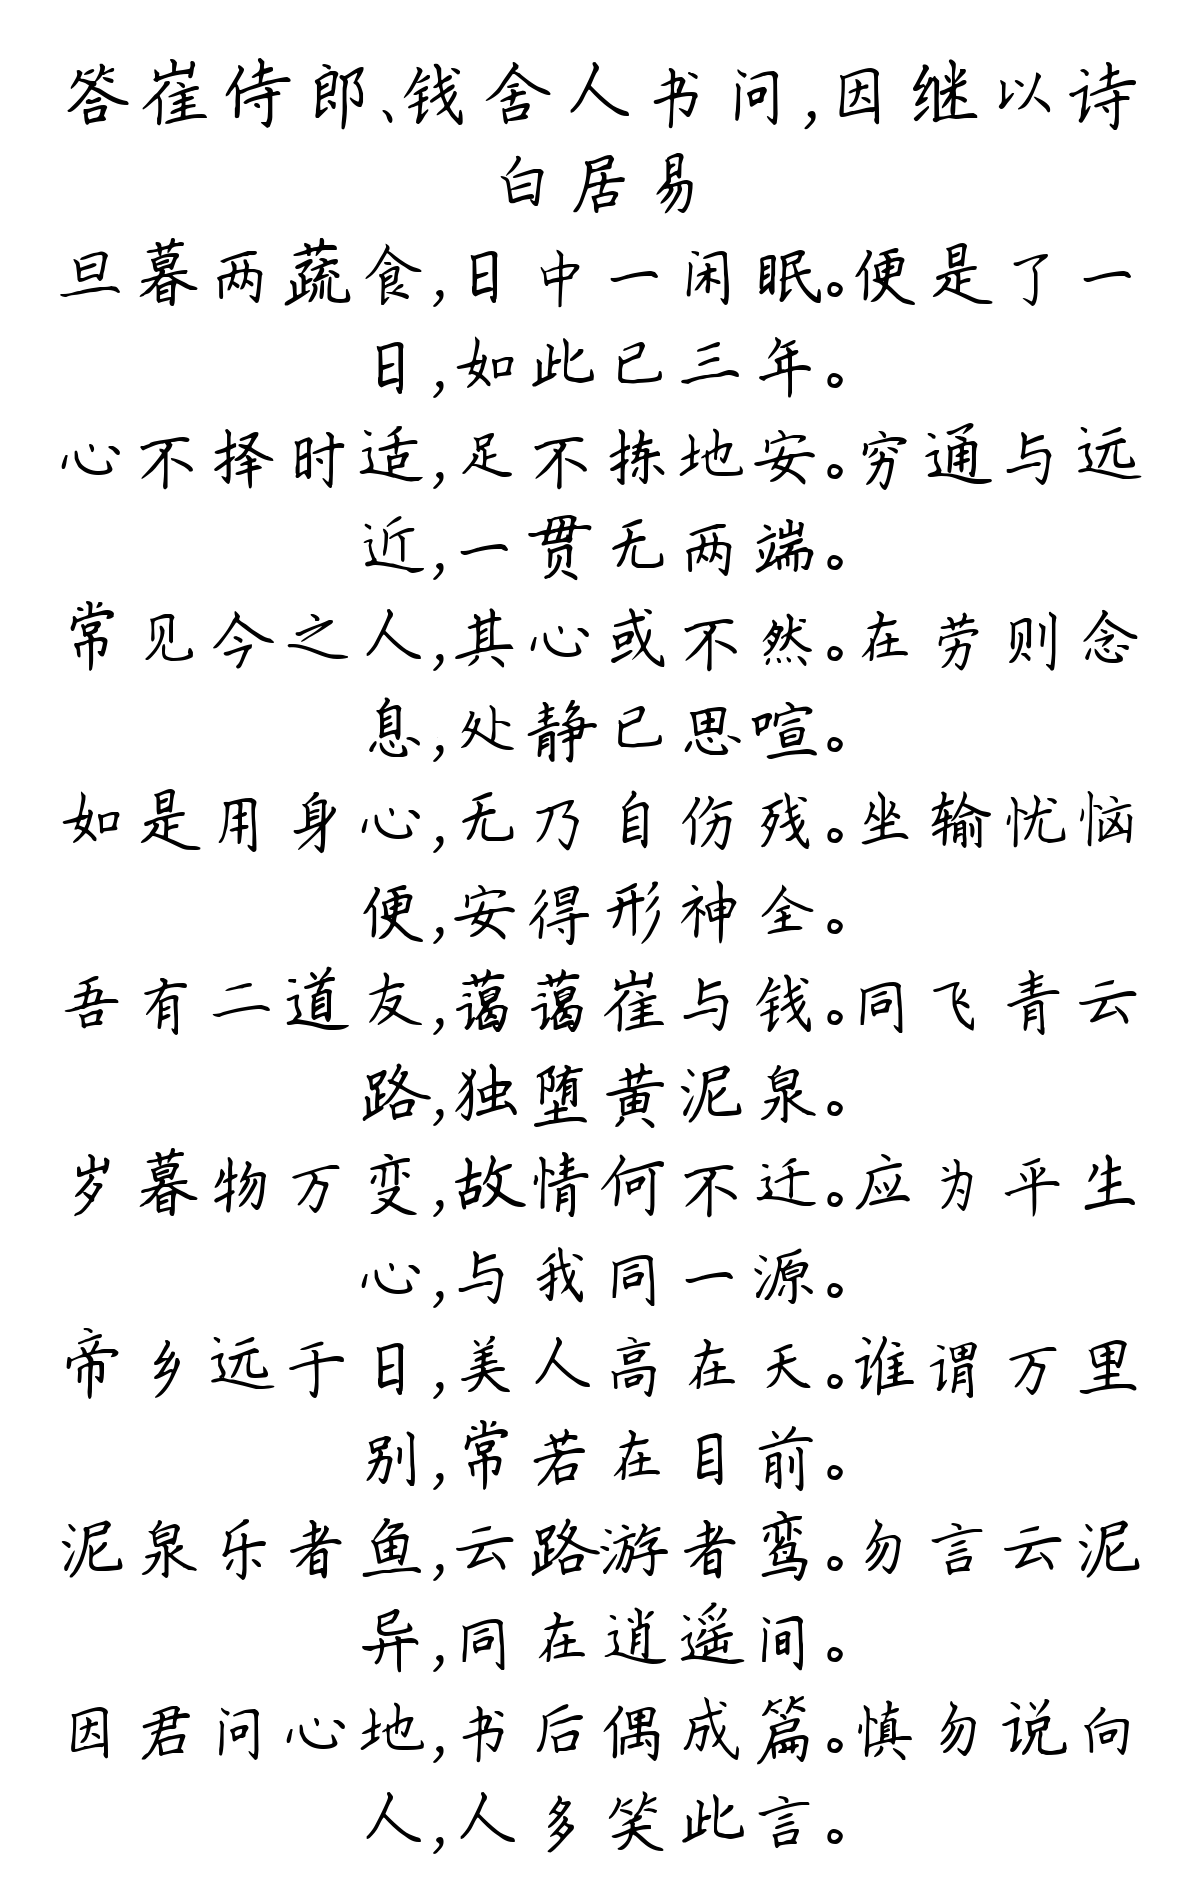 答崔侍郎、钱舍人书问,因继以诗
白居易
旦暮两蔬食,日中一闲眠。便是了一
日,如此已三年。
心不择时适,足不拣地安。穷通与远
近,一贯无两端。
常见今之人,其心或不然。在劳则念
息,处静已思喧。
如是用身心,无乃自伤残。坐输忧恼
便,安得形神全。
吾有二道友,蔼蔼崔与钱。同飞青云
路,独堕黄泥泉。
岁暮物万变,故情何不迁。应为平生
心,与我同一源。
帝乡远于日,美人高在天。谁谓万里
别,常若在目前。
泥泉乐者鱼,云路游者鸾。勿言云泥
异,同在逍遥间。
因君问心地,书后偶成篇。慎勿说向
人,人多笑此言。